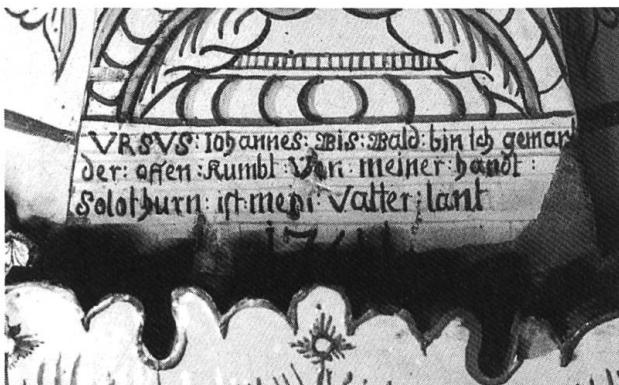 VRSVS: Iohannes: Wis: Wald: bin ich geman
der: offen: Kumbt Von: meiner: handt:
Solothurn: ist: mein: Vatter: lant